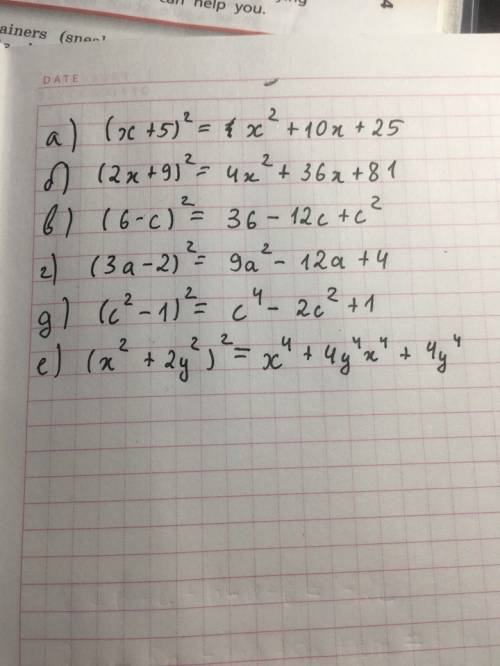 can help you.
DATE
а) (x+5)² = x² + 10x + 25
б) (2x+9)² = 4x² + 36x + 81
в) (6-c)² = 36 - 12c + c²
г) (3a-2)² = 9a² - 12a + 4
д) (c² - 1)² = c⁴ - 2c² + 1
е) (x² + 2y²)² = x⁴ + 4y⁴x⁴ + 4y⁴